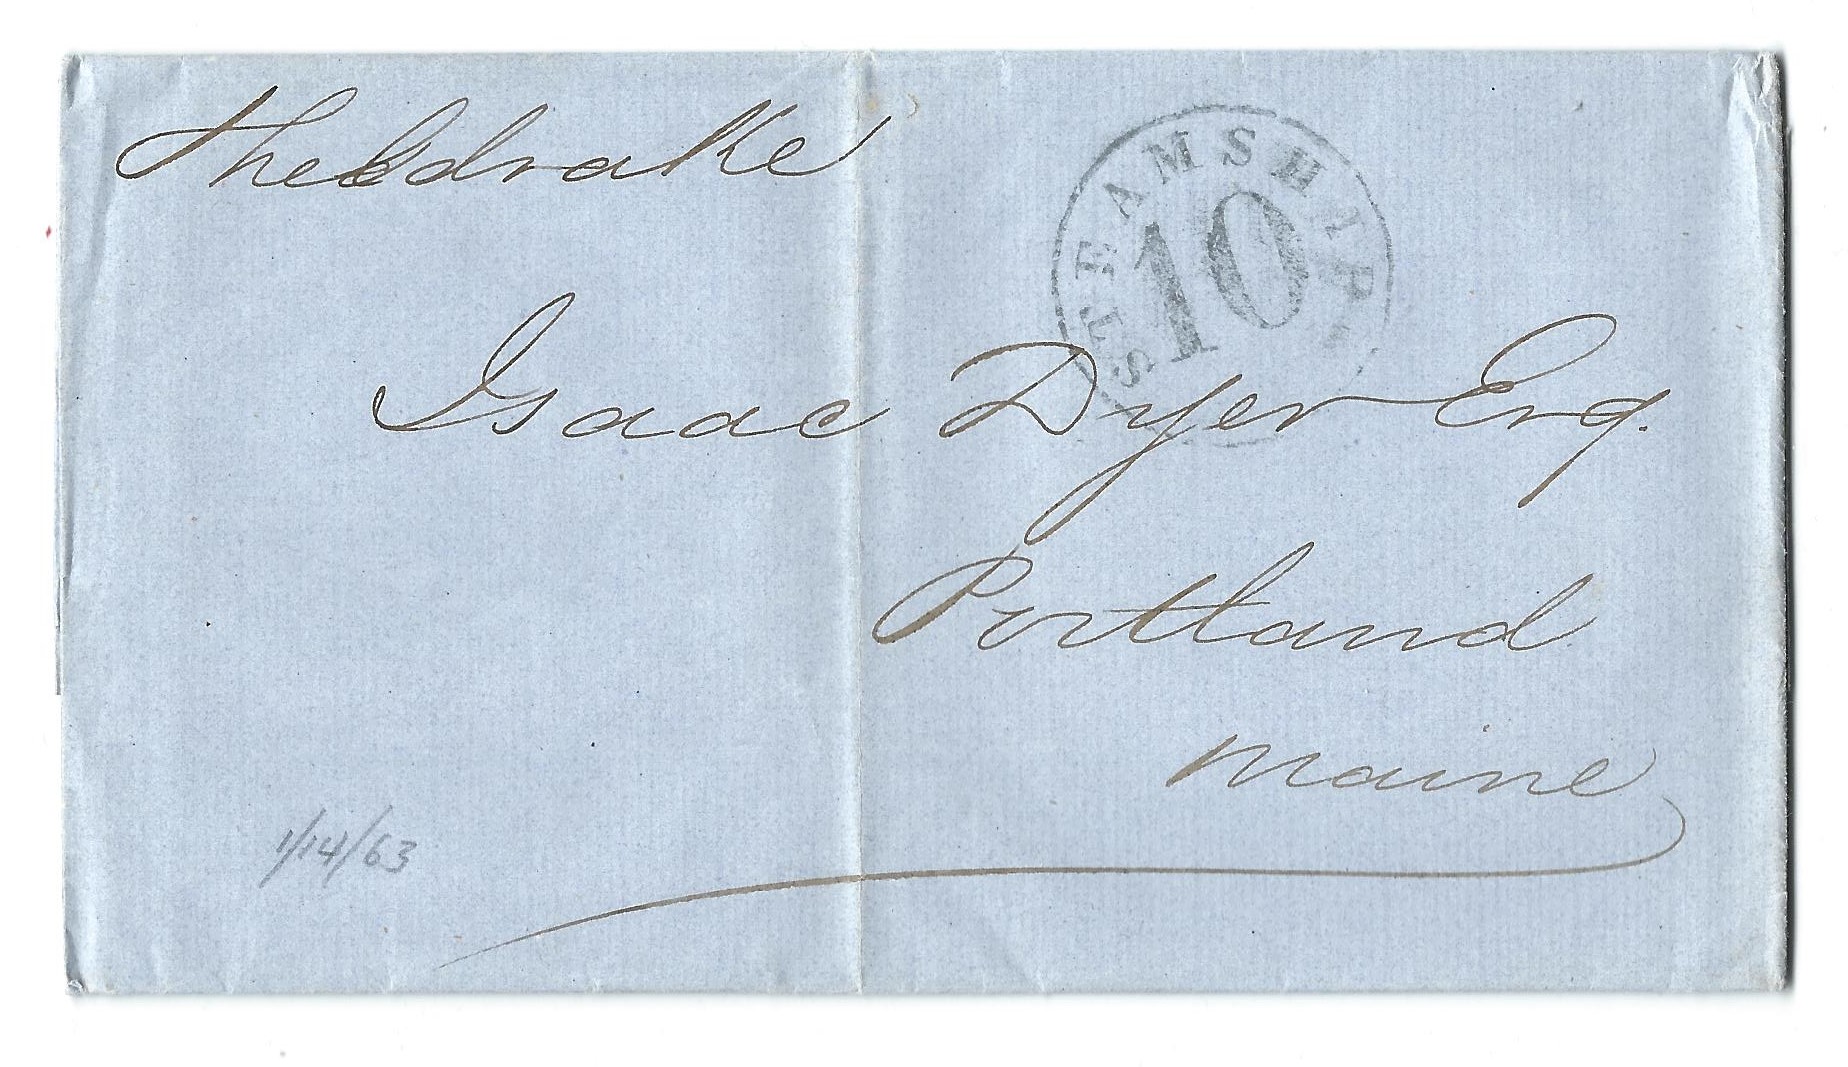 STEAMSHIP
10
Isaac Dyer Esq.
Portland
Maine
1/14/63